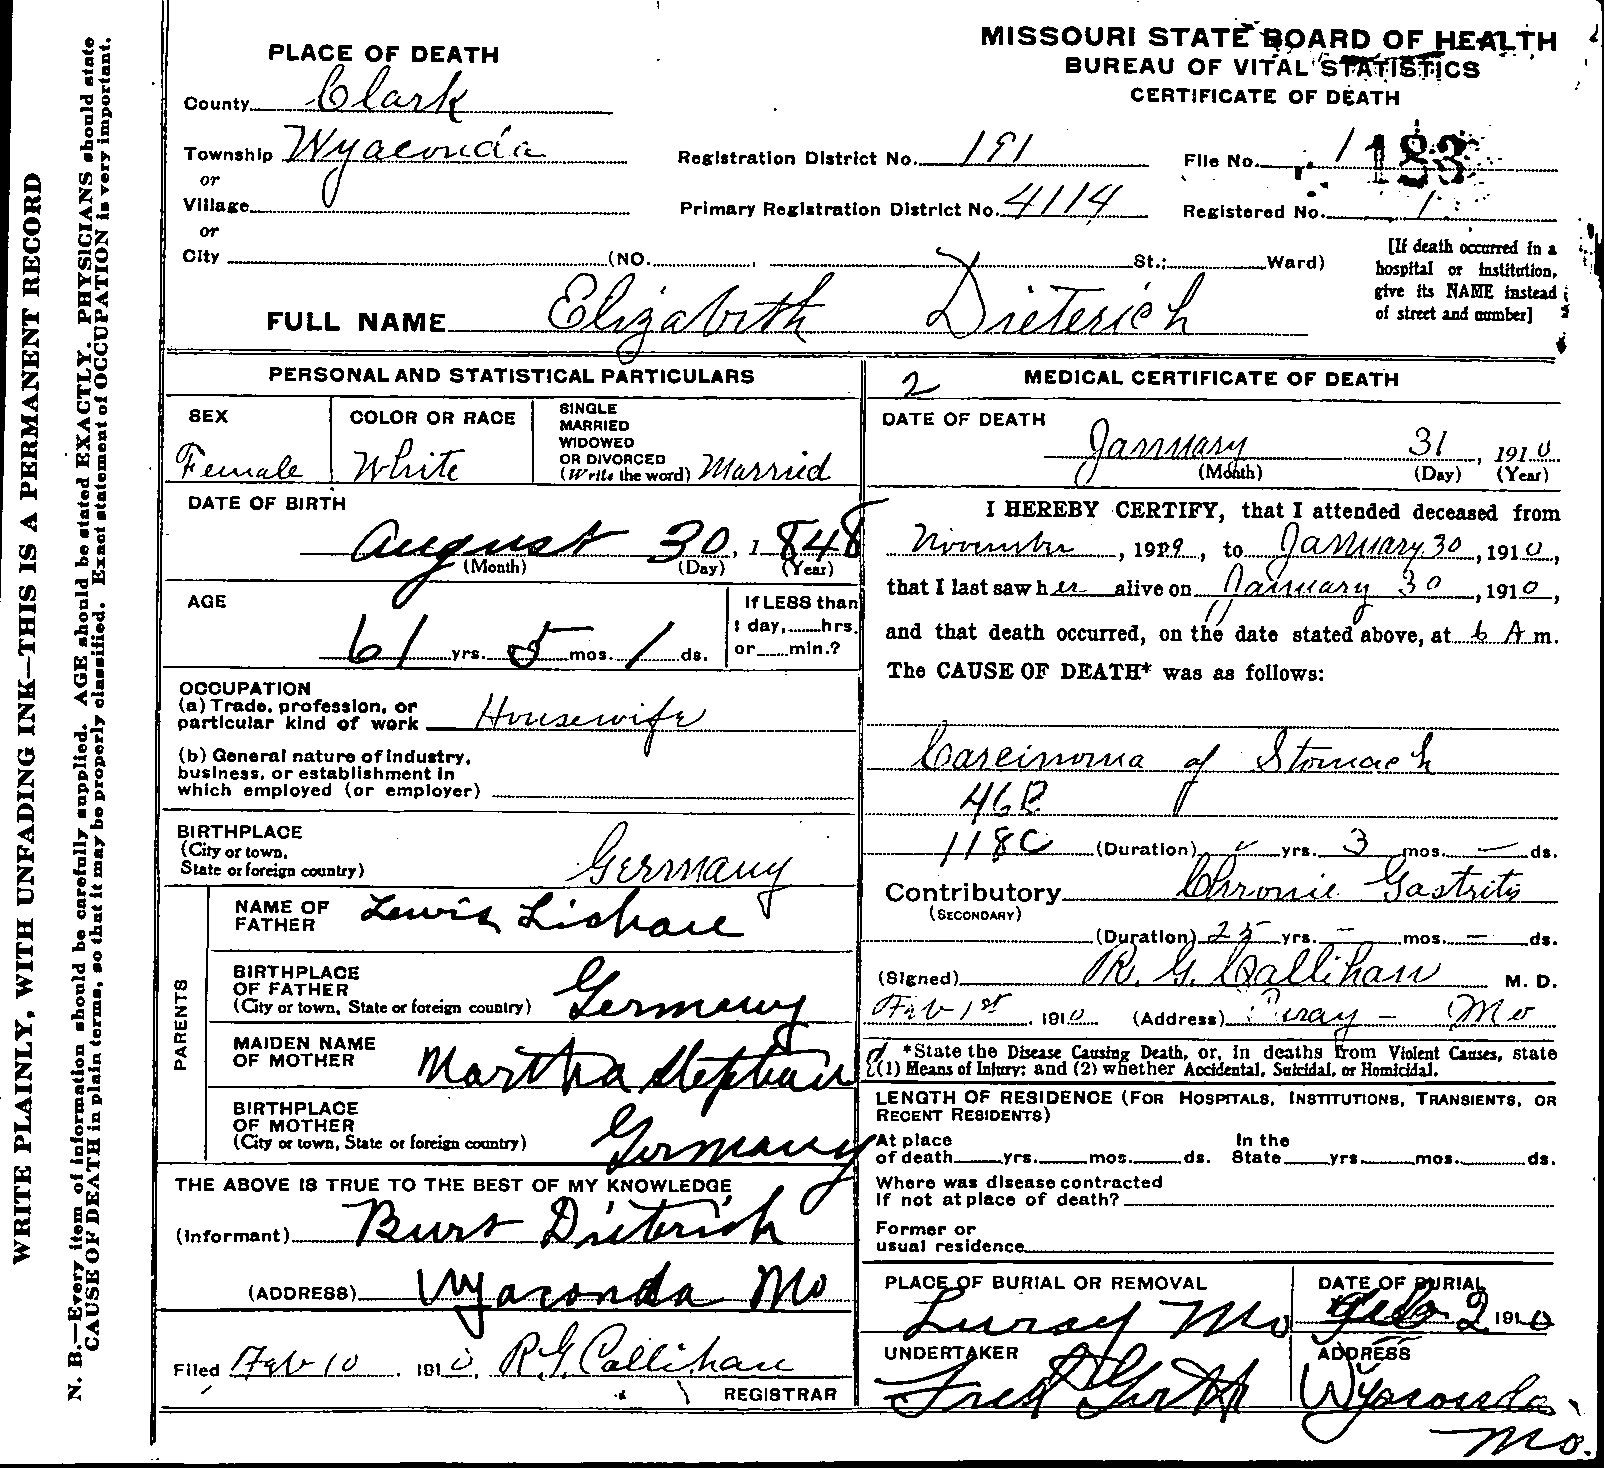 MISSOURI STATE BOARD OF HEALTH
BUREAU OF VITAL STATISTICS
CERTIFICATE OF DEATH
PLACE OF DEATH
County Clark
Township Wyaconda
or
Village
or
City (NO. St.; Ward)
Registration District No. 191
File No. 1183
Primary Registration District No. 4114
Registered No. 1
[If death occurred in a
hospital or institution,
give its NAME instead
of street and number]
FULL NAME Elizabeth Dieterich
PERSONAL AND STATISTICAL PARTICULARS
SEX
Female
COLOR OR RACE
White
SINGLE
MARRIED
WIDOWED
OR DIVORCED
(Write the word) Married
DATE OF BIRTH
August 30, 1848
(Month) (Day) (Year)
AGE
61 yrs. 5 mos. 1 ds.
If LESS than
1 day, hrs.
or min.?
OCCUPATION
(a) Trade, profession, or
particular kind of work Housewife
(b) General nature of industry,
business, or establishment in
which employed (or employer)
BIRTHPLACE
(City or town,
State or foreign country) Germany
PARENTS
NAME OF
FATHER Lewis
BIRTHPLACE
OF FATHER
(City or town, State or foreign country) Germany
MAIDEN NAME
OF MOTHER Martha
BIRTHPLACE
OF MOTHER
(City or town, State or foreign country) Germany
THE ABOVE IS TRUE TO THE BEST OF MY KNOWLEDGE
(Informant) Burt Dieterich
(ADDRESS) Wyaconda Mo
Filed Feb 10, 1910, R.G. Callihan
REGISTRAR
2
MEDICAL CERTIFICATE OF DEATH
DATE OF DEATH
January 31, 1910
(Month) (Day) (Year)
I HEREBY CERTIFY, that I attended deceased from
November, 1909, to January 30, 1910,
that I last saw her alive on January 30, 1910,
and that death occurred, on the date stated above, at 6 A m.
The CAUSE OF DEATH* was as follows:
Carcinoma of Stomach
46B
118C (Duration) yrs. 3 mos. — ds.
Contributory Chronic Gastritis
(SECONDARY)
(Duration) 25 yrs. — mos. — ds.
(Signed) R. G. Callihan M. D.
Feb 1st, 1910 (Address) Luray - Mo
*State the Disease Causing Death, or, in deaths from Violent Causes, state
(1) Means of Injury; and (2) whether Accidental, Suicidal, or Homicidal.
LENGTH OF RESIDENCE (FOR HOSPITALS, INSTITUTIONS, TRANSIENTS, OR
RECENT RESIDENTS)
At place
of death yrs. mos. ds.
In the
State yrs. mos. ds.
Where was disease contracted
if not at place of death?
Former or
usual residence
PLACE OF BURIAL OR REMOVAL
Luray Mo
DATE OF BURIAL
Feb 2 1910
UNDERTAKER
Fred
ADDRESS
Wyaconda
Mo.
WRITE PLAINLY, WITH UNFADING INK—THIS IS A PERMANENT RECORD
N. B.—Every item of information should be carefully supplied. AGE should be stated EXACTLY. PHYSICIANS should state
CAUSE OF DEATH in plain terms, so that it may be properly classified. Exact statement of OCCUPATION is very important.